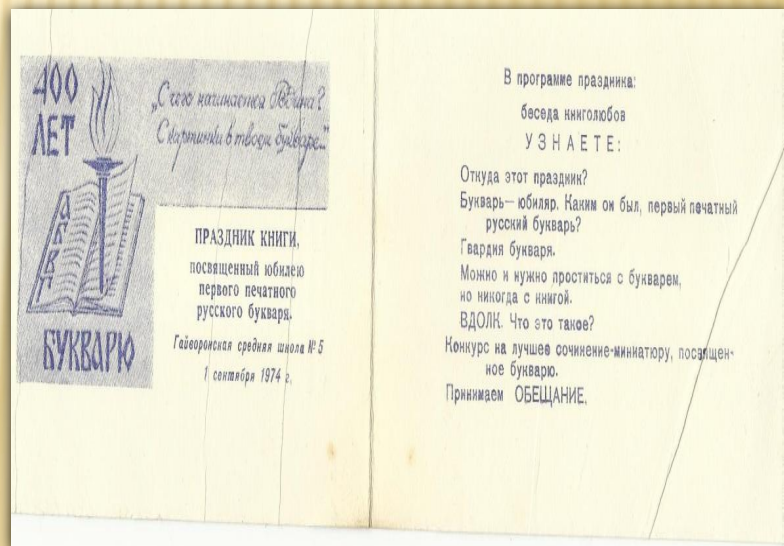 400
ЛЕТ
„С чего начинается Родина?
С картинки в твоем букваре..."
А
Б
В
Г
БУКВАРЮ
ПРАЗДНИК КНИГИ,
посвященный юбилею
первого печатного
русского букваря.
Гайворонская средняя школа № 5
1 сентября 1974 г.
В программе праздника:
беседа книголюбов
УЗНАЕТЕ:
Откуда этот праздник?
Букварь— юбиляр. Каким он был, первый печатный
русский букварь?
Гвардия букваря.
Можно и нужно проститься с букварем,
но никогда с книгой.
ВДОЛК. Что это такое?
Конкурс на лучшее сочинение-миниатюру, посвящен-
ное букварю.
Принимаем ОБЕЩАНИЕ.